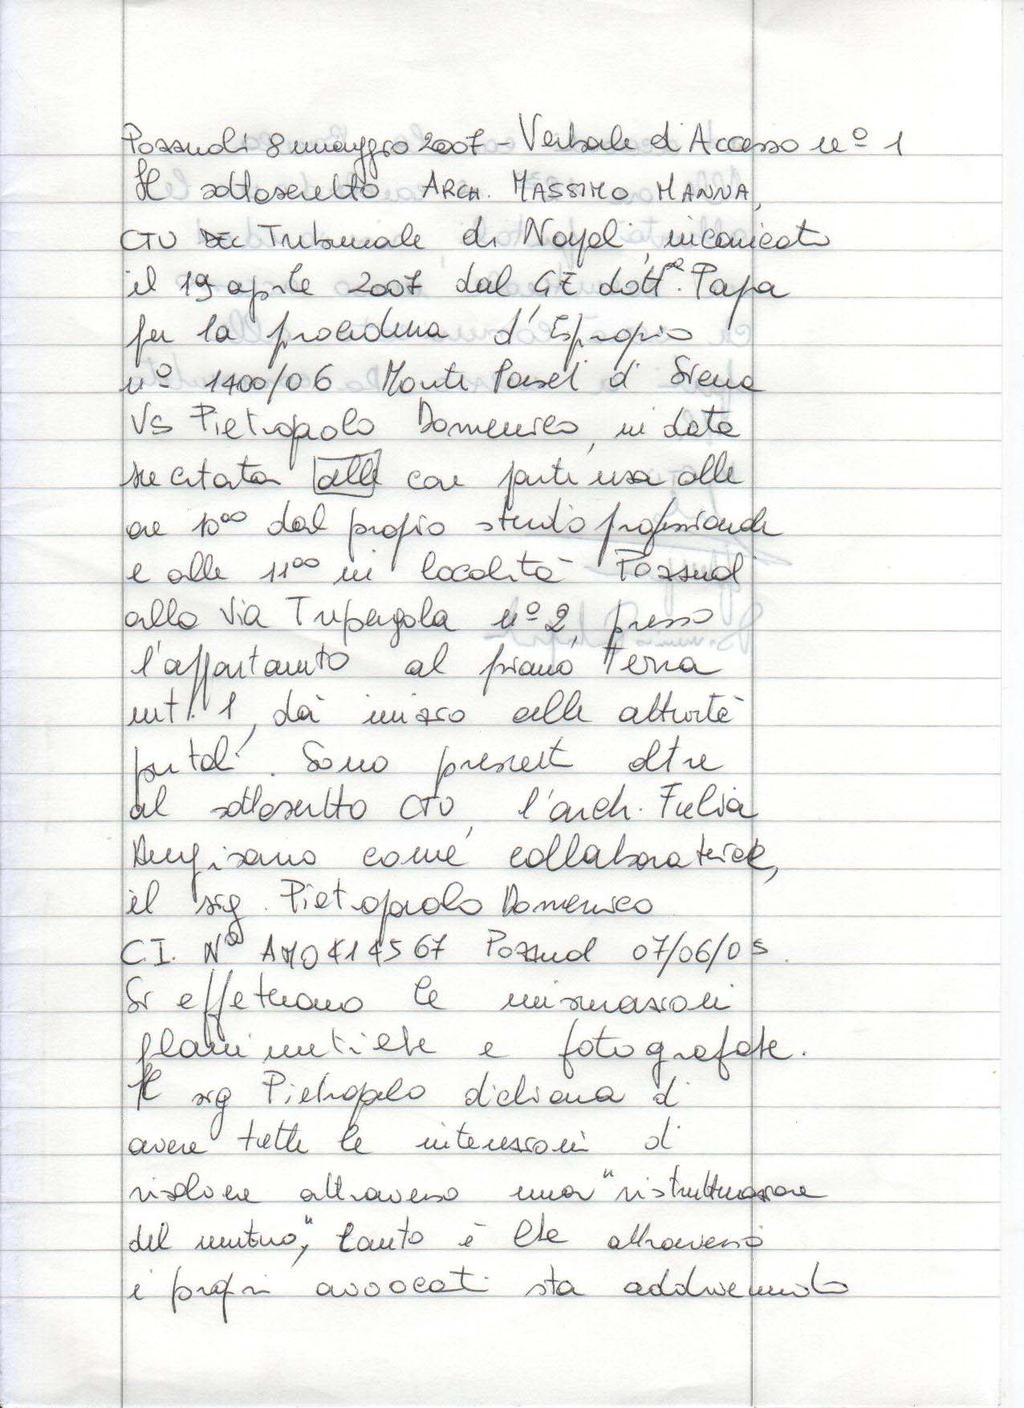 Pozzuoli 8 maggio 2007 - Verbale di Accesso n° 1
Il sottoscritto ARCH. MASSIMO MANNA,
CTU DEL Tribunale di Napoli, incaricato
il 19 aprile 2007 dal GE dott. Papa
per la procedura d'Esproprio
n° 1400/06 Monte Paschi di Siena
VS Pietropaolo Domenico, in data
su citata alle con partenza alle
ore 10°° dal proprio studio professionale
e alle 11°° in località Pozzuoli
alla Via Tripergola n° 2, presso
l'appartamento al piano terra
int. 1, dà inizio alle attività
peritali. Sono presenti oltre
al sottoscritto CTU, l'arch. Fulvia
come collaboratrice,
il sig. Pietropaolo Domenico
C.I. N° Pozzuoli 07/06/05.
Si effettuano le misurazioni
planimetriche e fotografate.
Il sig Pietropaolo dichiara di
avere tutte le intenzioni di
risolvere attraverso una "ristrutturazione
del mutuo", tanto è che attraverso
i propri avvocati sta addivenendo